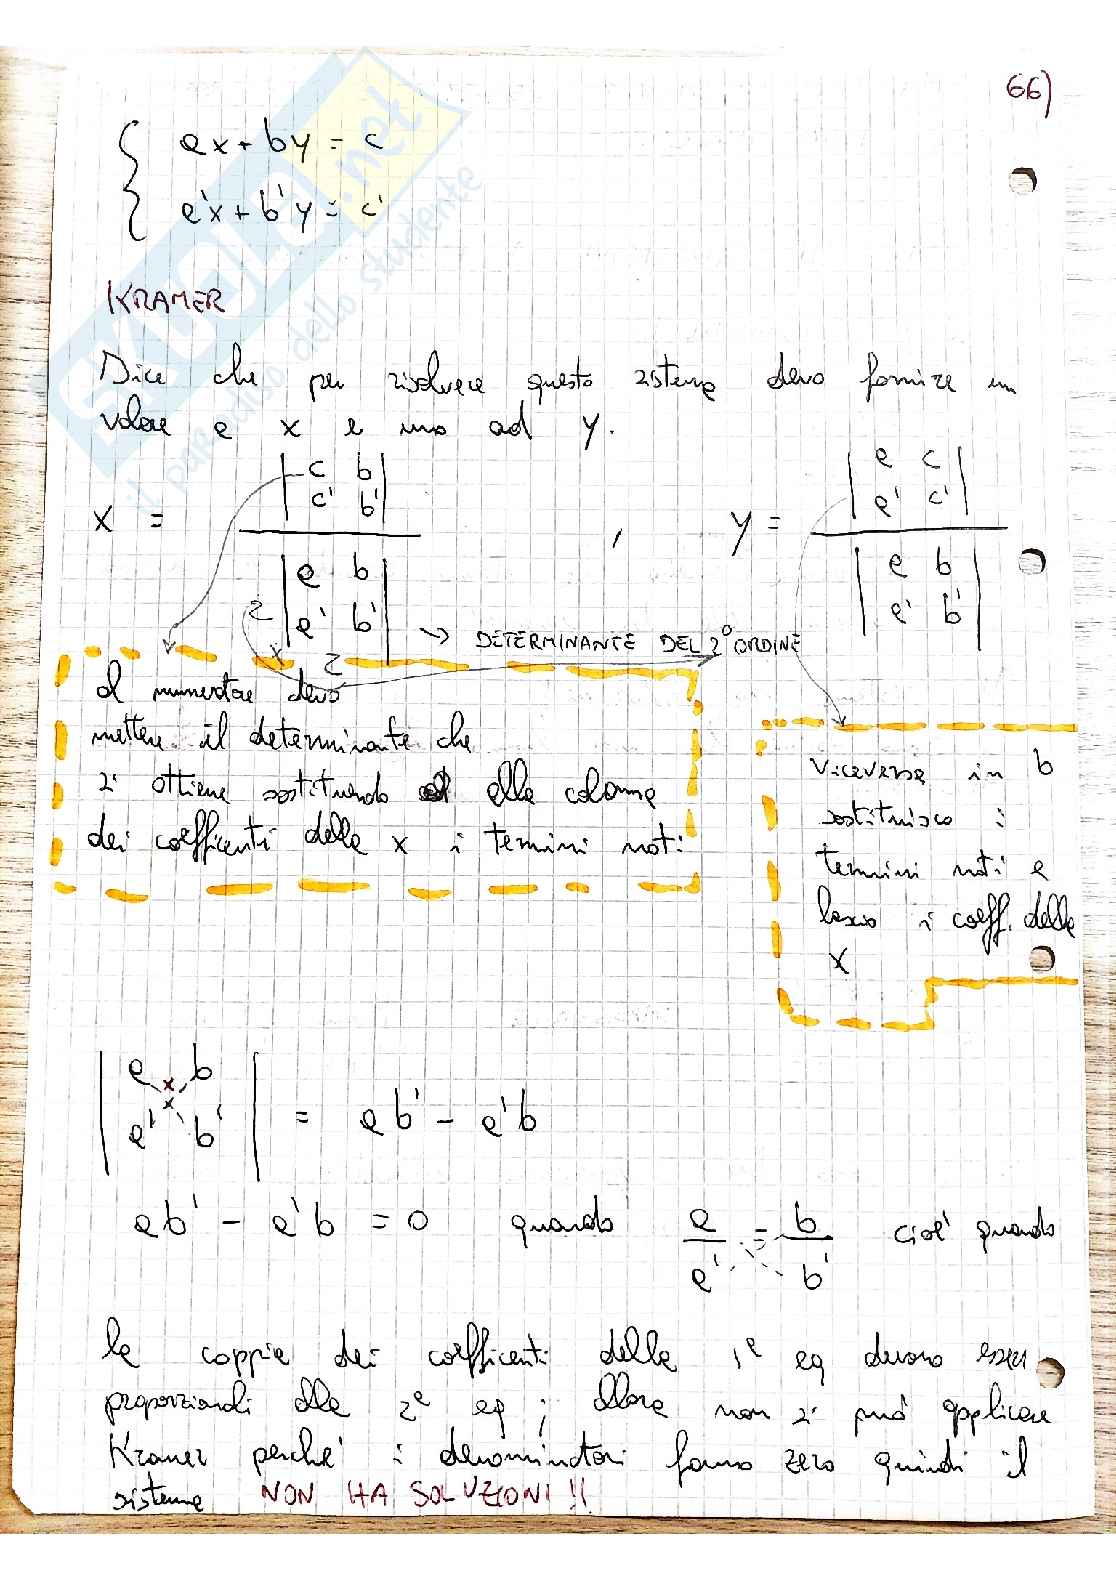 66)
ax + by = c
a'x + b'y = c'
KRAMER
Dice che per risolvere questo sistema devo fornire un
valore a x e uno ad y.
x = | c b | , y = | a c |
| c' b' | | a' c' |
| a b | | a b |
| a' b' | | a' b' |
2
x
2
→ DETERMINANTE DEL 2° ORDINE
Al numeratore devo
mettere il determinante che
si ottiene sostituendo alla colonna
dei coefficenti della x i termini noti
Viceversa in b
sostituisco i
termini noti e
lascio i coeff. della
x
| a b |
| a' b' | = ab' - a'b
ab' - a'b = 0 quando a/a' = b/b' cioè quando
la coppia dei coefficenti della 1ª eq devono esser
proporzionali alla 2ª eq ; allora non si può applicare
Kramer perché i denominatori fanno zero quindi il
sistema NON HA SOLUZIONI !!
SKUOLA.net
il paradiso dello studente